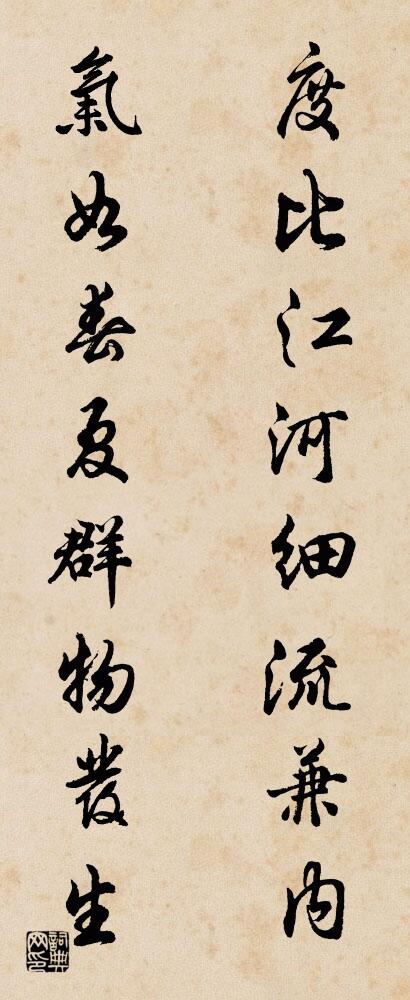 度比江河細流兼内
氣如春夏群物發生
詞典网印